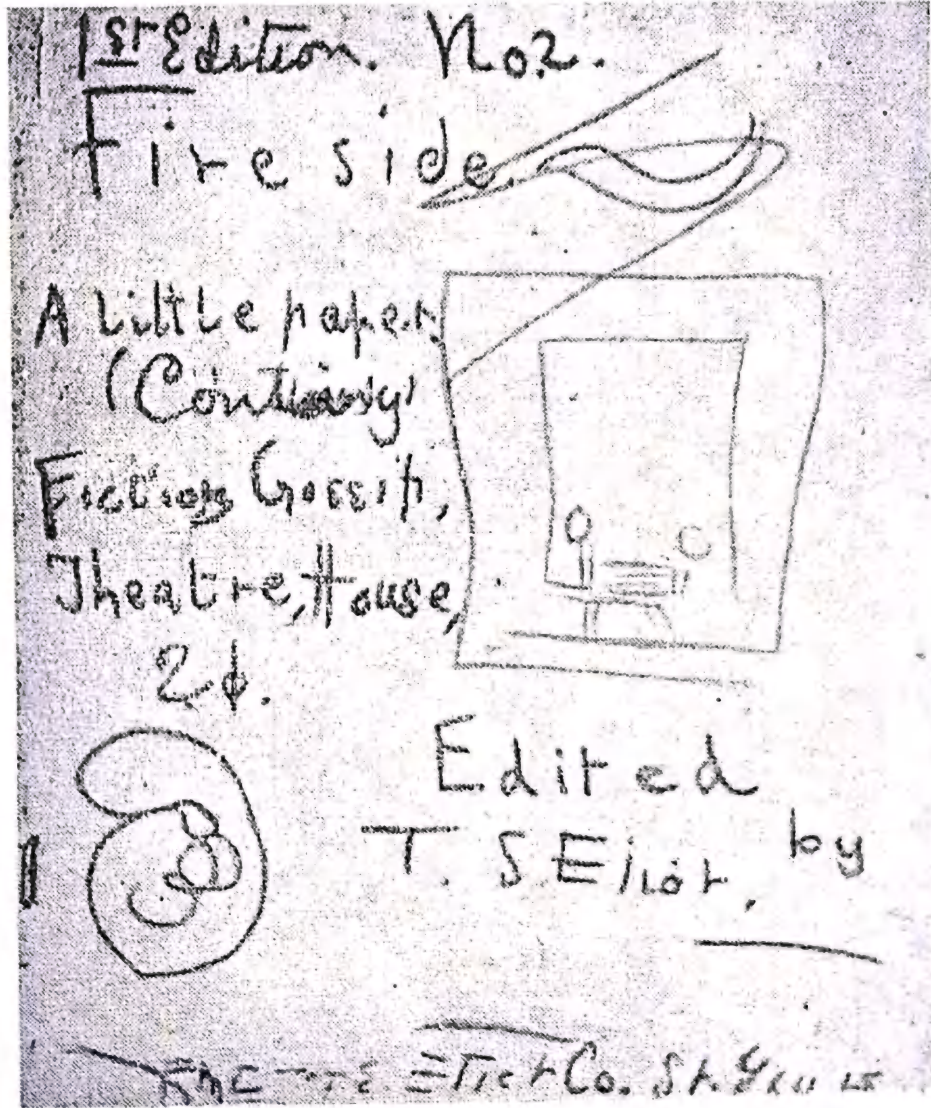 1st Edition. No. 2.
Fireside.
A Little paper
(Containing)
Fiction, Gossip,
Theatre, House,
2¢.
Edited
by
T. S Eliot.
Eliot Co. St.